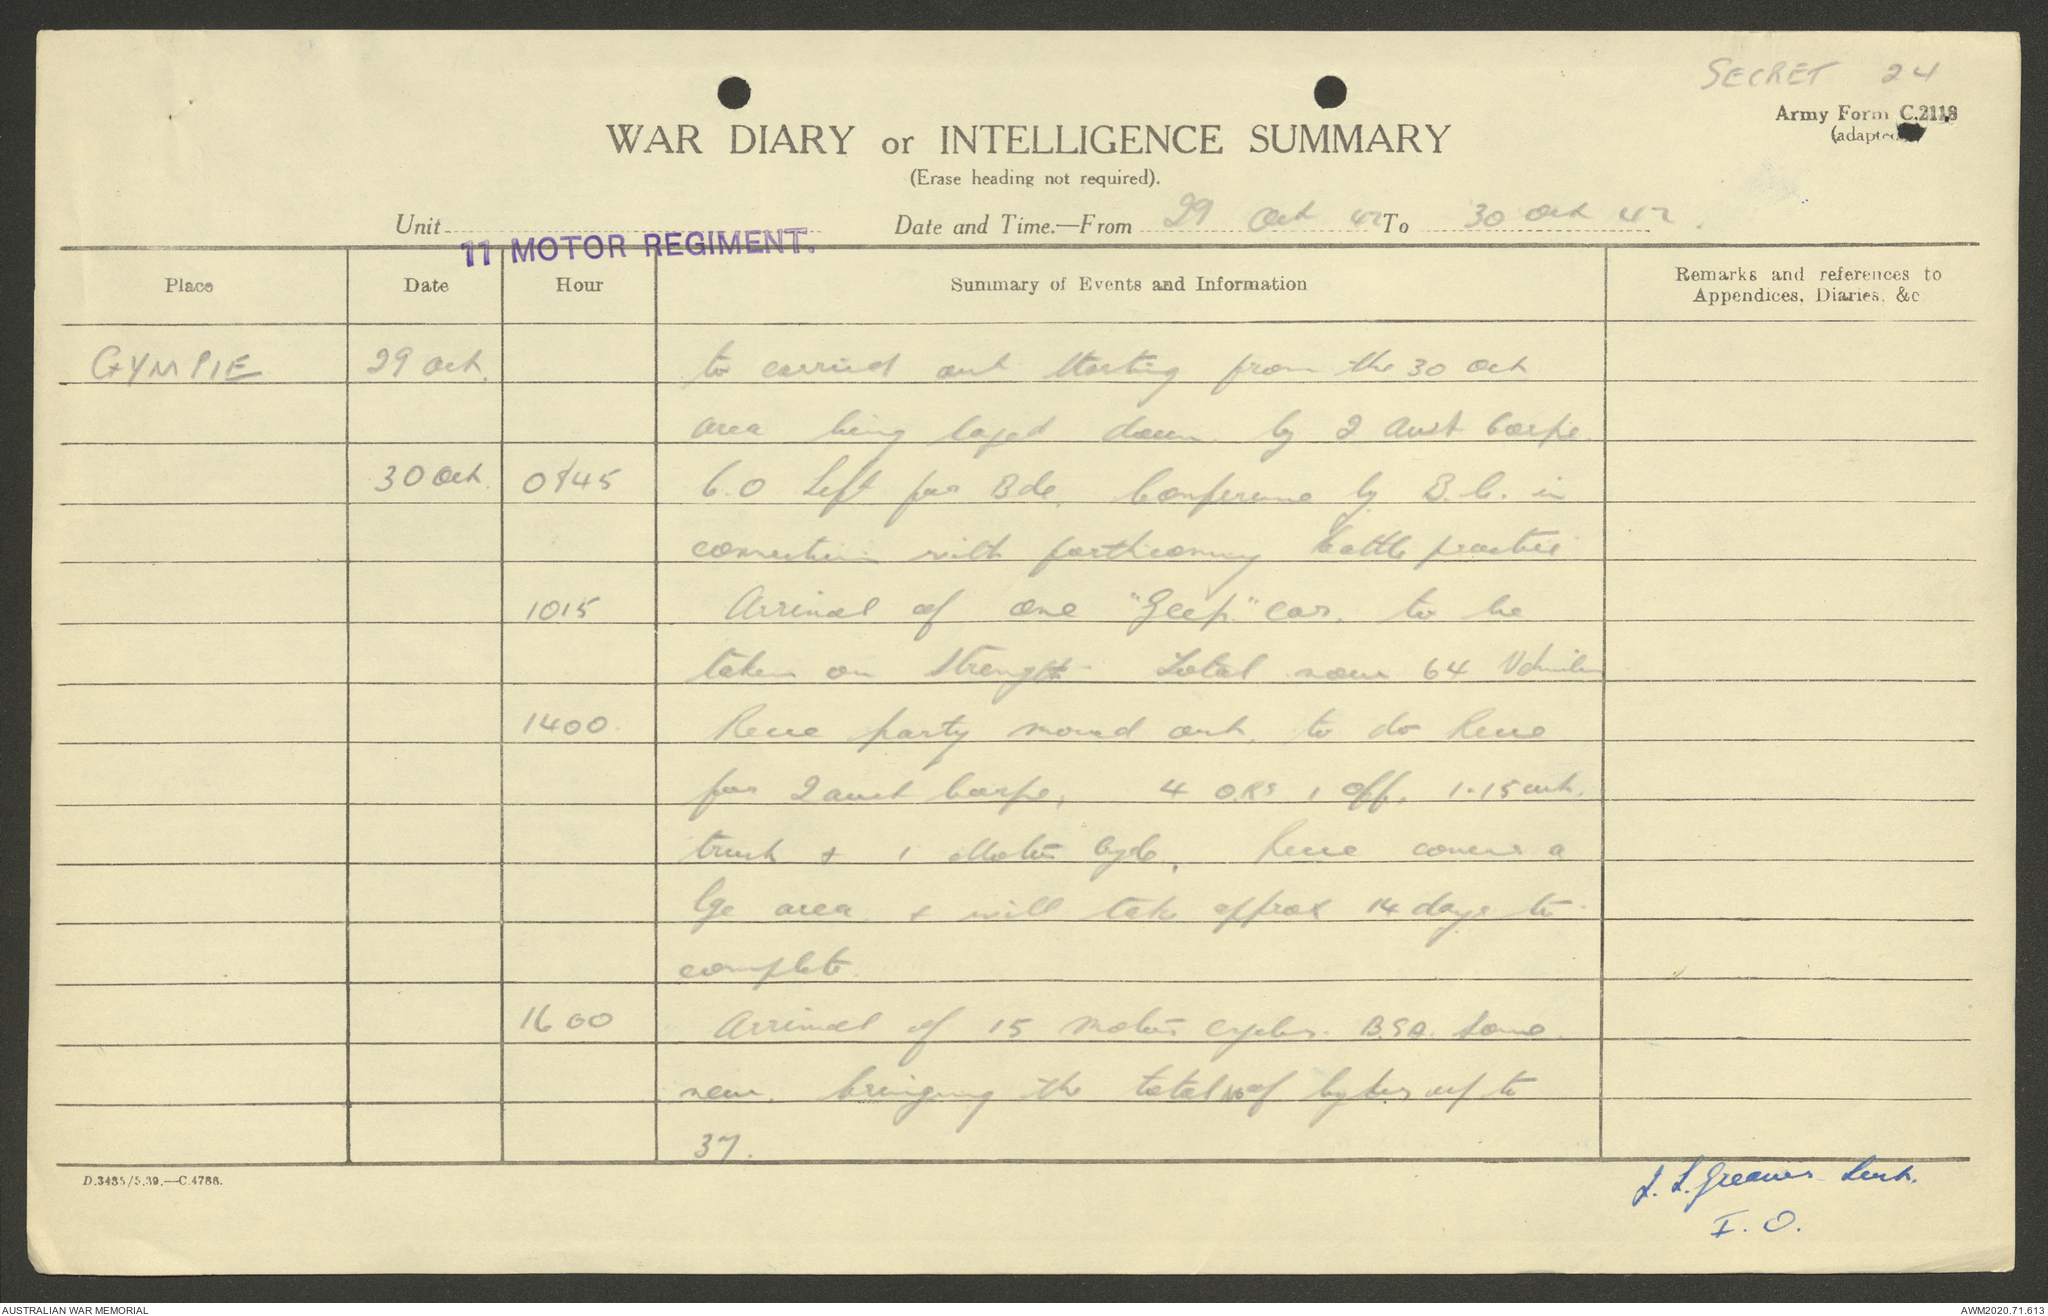 SECRET 24
Army Form C.2118
(adapted)
WAR DIARY or INTELLIGENCE SUMMARY
(Erase heading not required).
Unit 11 MOTOR REGIMENT. Date and Time.—From 29 Oct 42 To 30 Oct 42.
Place Date Hour Summary of Events and Information Remarks and references to
Appendices, Diaries, &c
GYMPIE 29 Oct. to carried out starting from the 30 Oct
area being layed down by 2 Aust Corps.
30 Oct 0845 C.O Left for Bde. Conference by B.C. in
connection with forthcoming battle practice
1015 Arrival of one "Geep" car. to be
taken on strength Total now 64 Vehicles
1400. Recce party moved out. to do Recce
for 2 Aust Corps, 4 O.Rs 1 Off, 1-15 cwt.
truck & 1 Motor Cycle. Recce covers a
lge area & will take approx 14 days to
complete.
1600 Arrival of 15 motor cycles. B.S.A. Some
new. bringing the total No of cycles up to
37.
D.3435/5.39.—C.4788.
J. L. Greaves Lieut.
I. O.
AUSTRALIAN WAR MEMORIAL
AWM2020.71.613